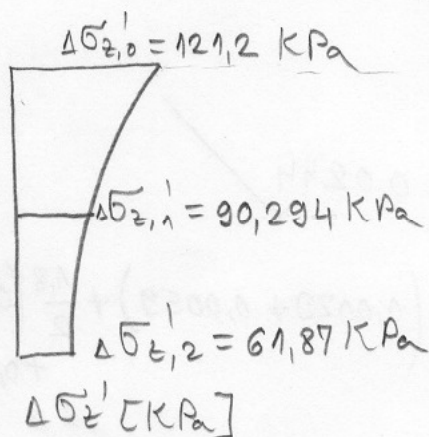 Δσz,0' = 121,2 KPa
Δσz,1' = 90,294 KPa
Δσz,2' = 61,87 KPa
Δσz' [KPa]